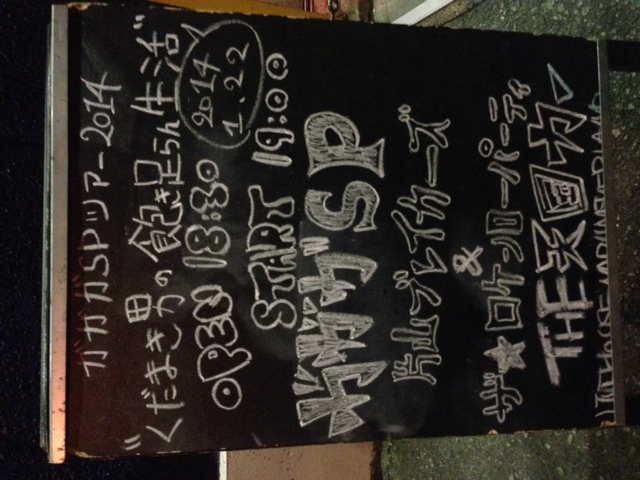 ガガガSPツアー2014
"くだまき男の飽き足らん生活"
2014
1.22
OPEN 18:30
START 19:00
ガガガSP
片山ブレイカーズ
&
ザ★ロケンローパーティ
THE天国カー